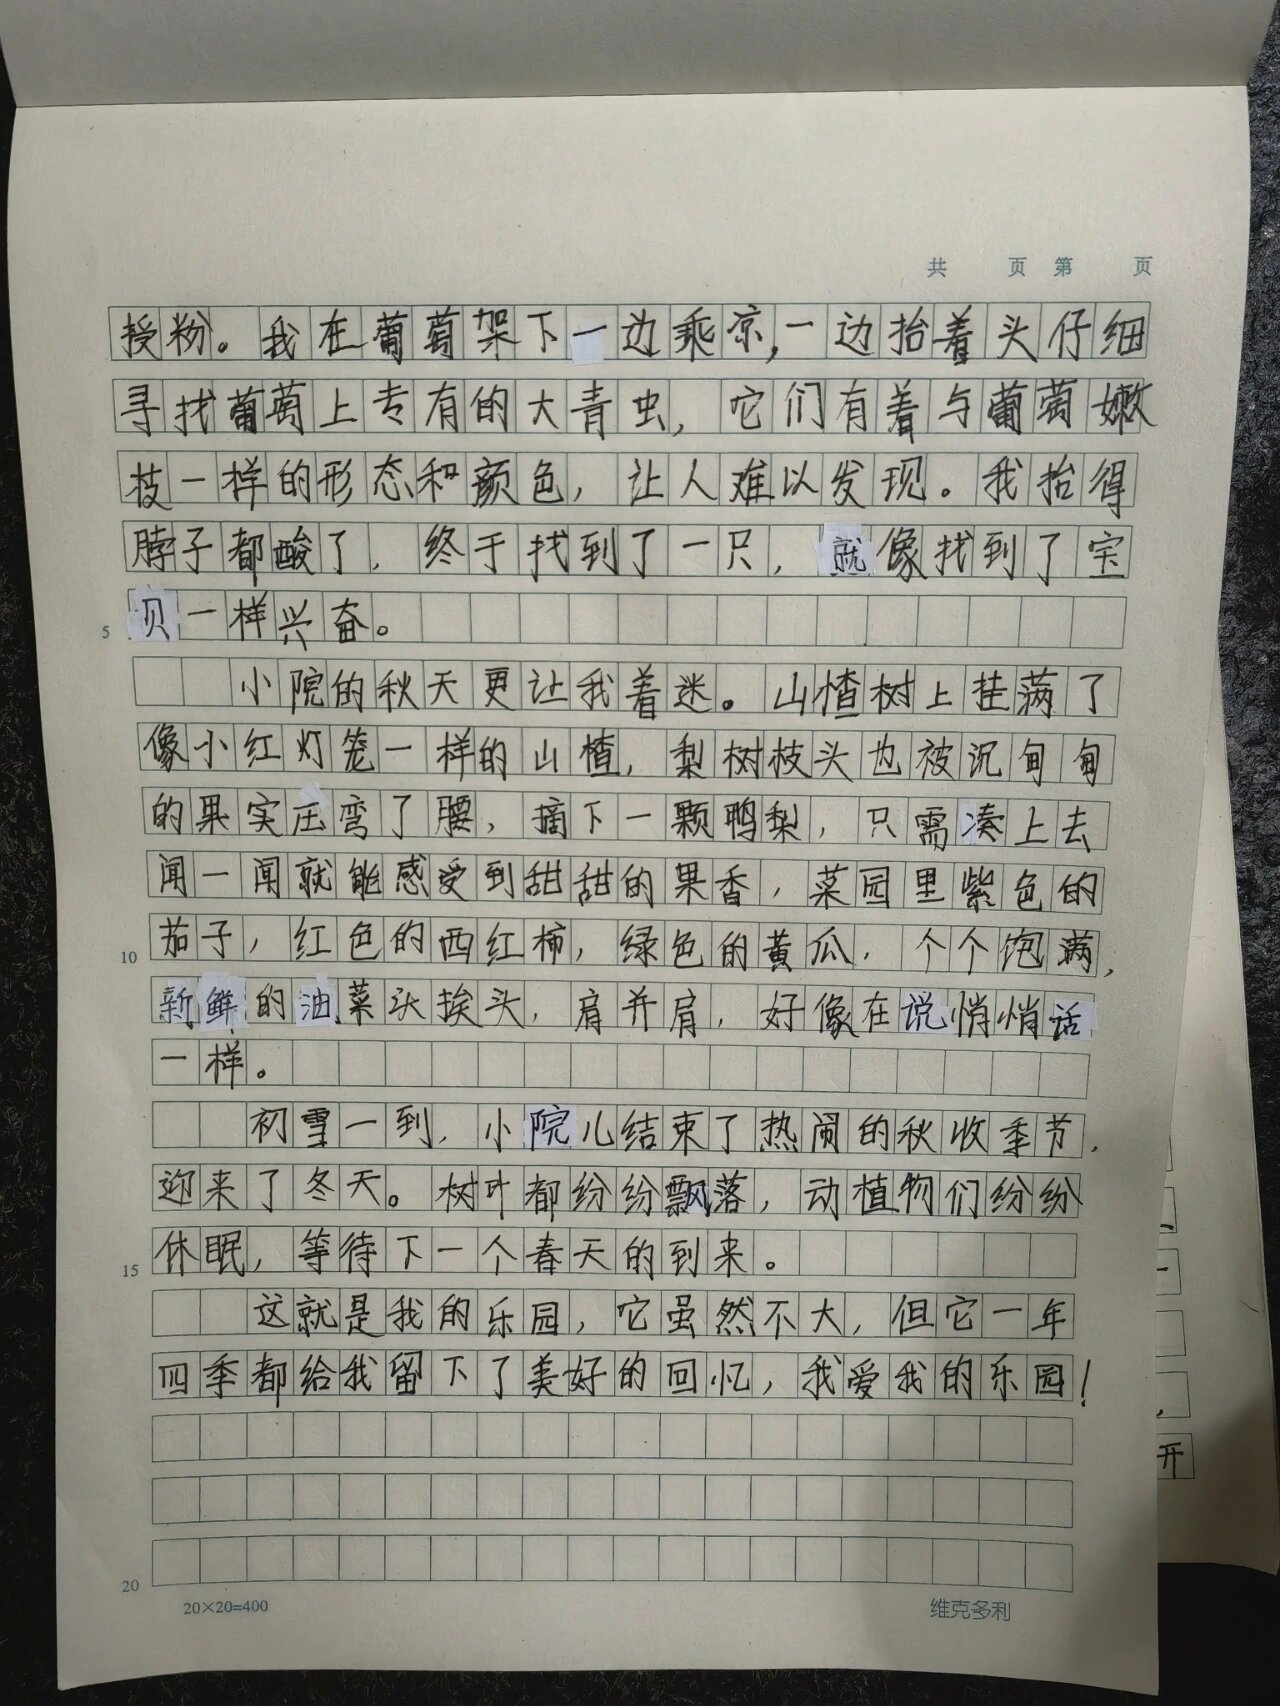 共 页 第 页
授粉。我在葡萄架下一边乘凉，一边抬着头仔细
寻找葡萄上专有的大青虫，它们有着与葡萄嫩
枝一样的形态和颜色，让人难以发现。我抬得
脖子都酸了，终于找到了一只，就像找到了宝
5 贝一样兴奋。
小院的秋天更让我着迷。山楂树上挂满了
像小红灯笼一样的山楂，梨树枝头也被沉甸甸
的果实压弯了腰，摘下一颗鸭梨，只需凑上去
闻一闻就能感受到甜甜的果香，菜园里紫色的
10 茄子，红色的西红柿，绿色的黄瓜，个个饱满，
新鲜的油菜头挨头，肩并肩，好像在说悄悄话
一样。
初雪一到，小院儿结束了热闹的秋收季节，
迎来了冬天。树叶都纷纷飘落，动植物们纷纷
15 休眠，等待下一个春天的到来。
这就是我的乐园，它虽然不大，但它一年
四季都给我留下了美好的回忆，我爱我的乐园！
20
20×20=400 维克多利
开